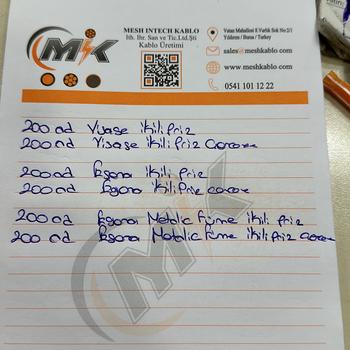 MK
MESH INTECH KABLO
İth. İhr. San ve Tic.Ltd.Şti
Kablo Üretimi
Vatan Mahallesi E.Varlık Sok No:2/1
Yıldırım / Bursa / Turkey
sales@meshkablo.com
www.meshkablo.com
0541 101 12 22
200 ad Visage ikili friz
200 ad Visage ikili friz Çerçeve
200 ad Egona ikili friz
200 ad Egona ikili friz çerçeve
200 ad Egona Metalic Füme ikili friz
200 ad Egona Metalic Füme ikili friz Çerçeve
MK